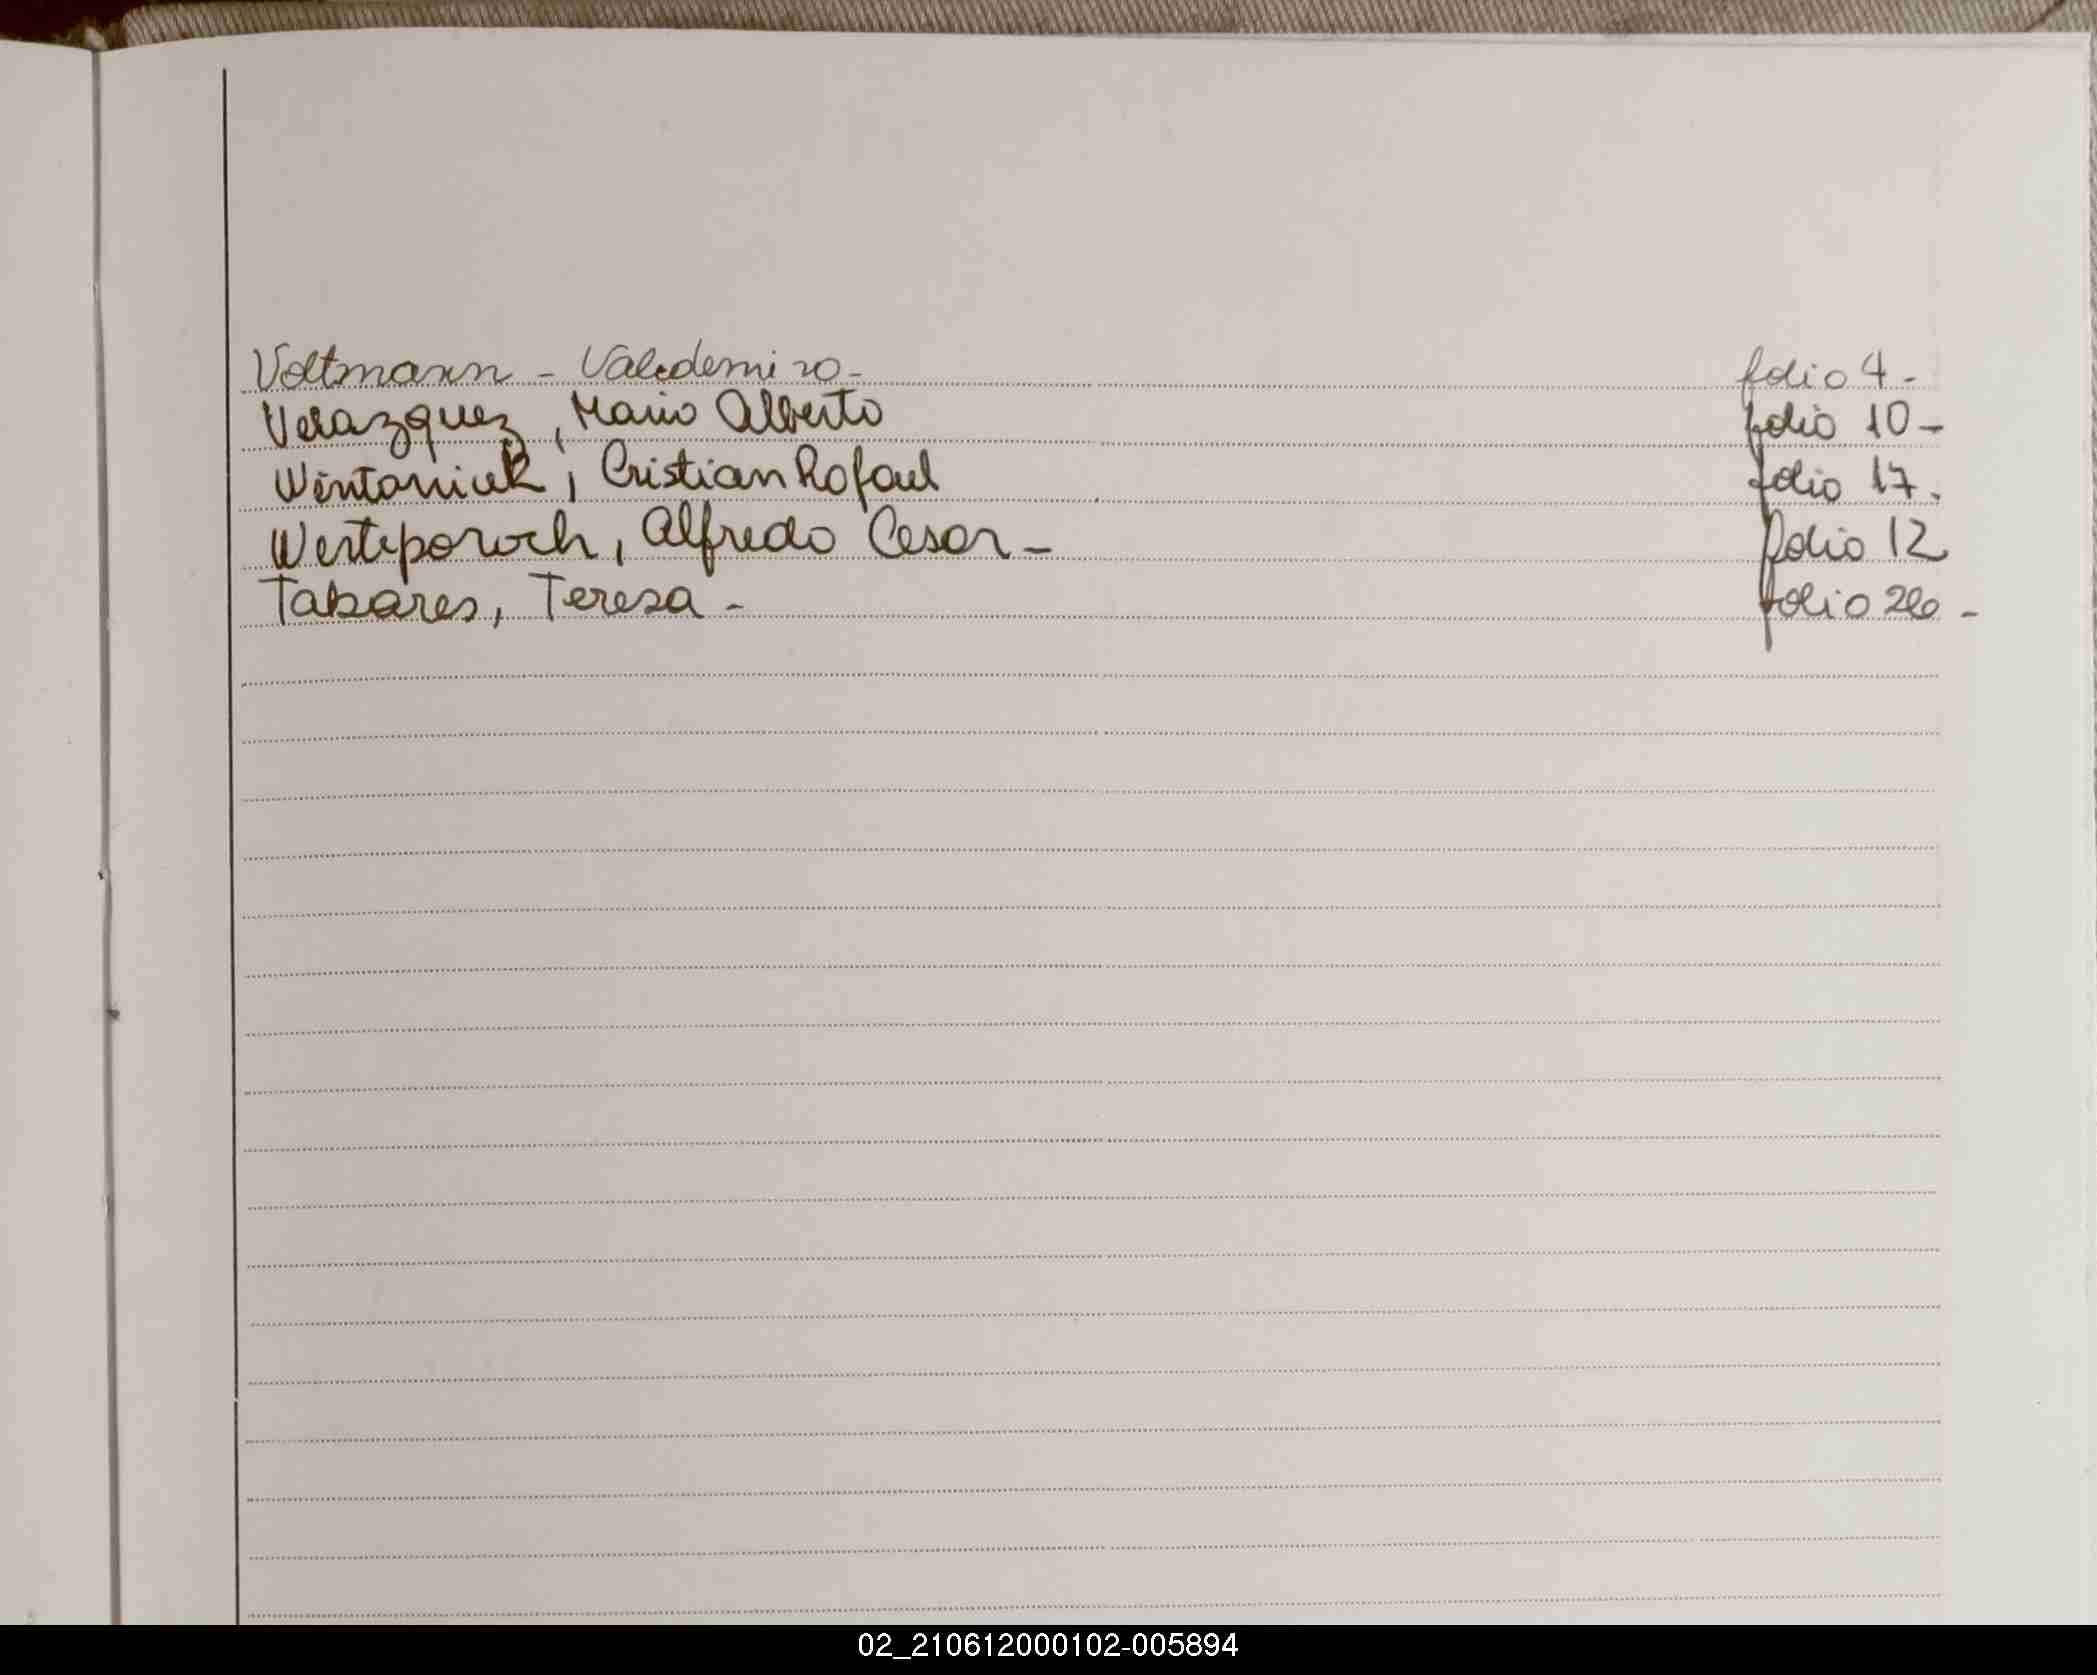 Voltmann - Valedemiro - folio 4 -
Velazquez, Mario Alberto folio 10 -
Wintoniuk, Cristian Rafael folio 17.
Westeporoch, Alfredo Cesar - folio 12
Tabares, Teresa - folio 20 -
02_210612000102-005894